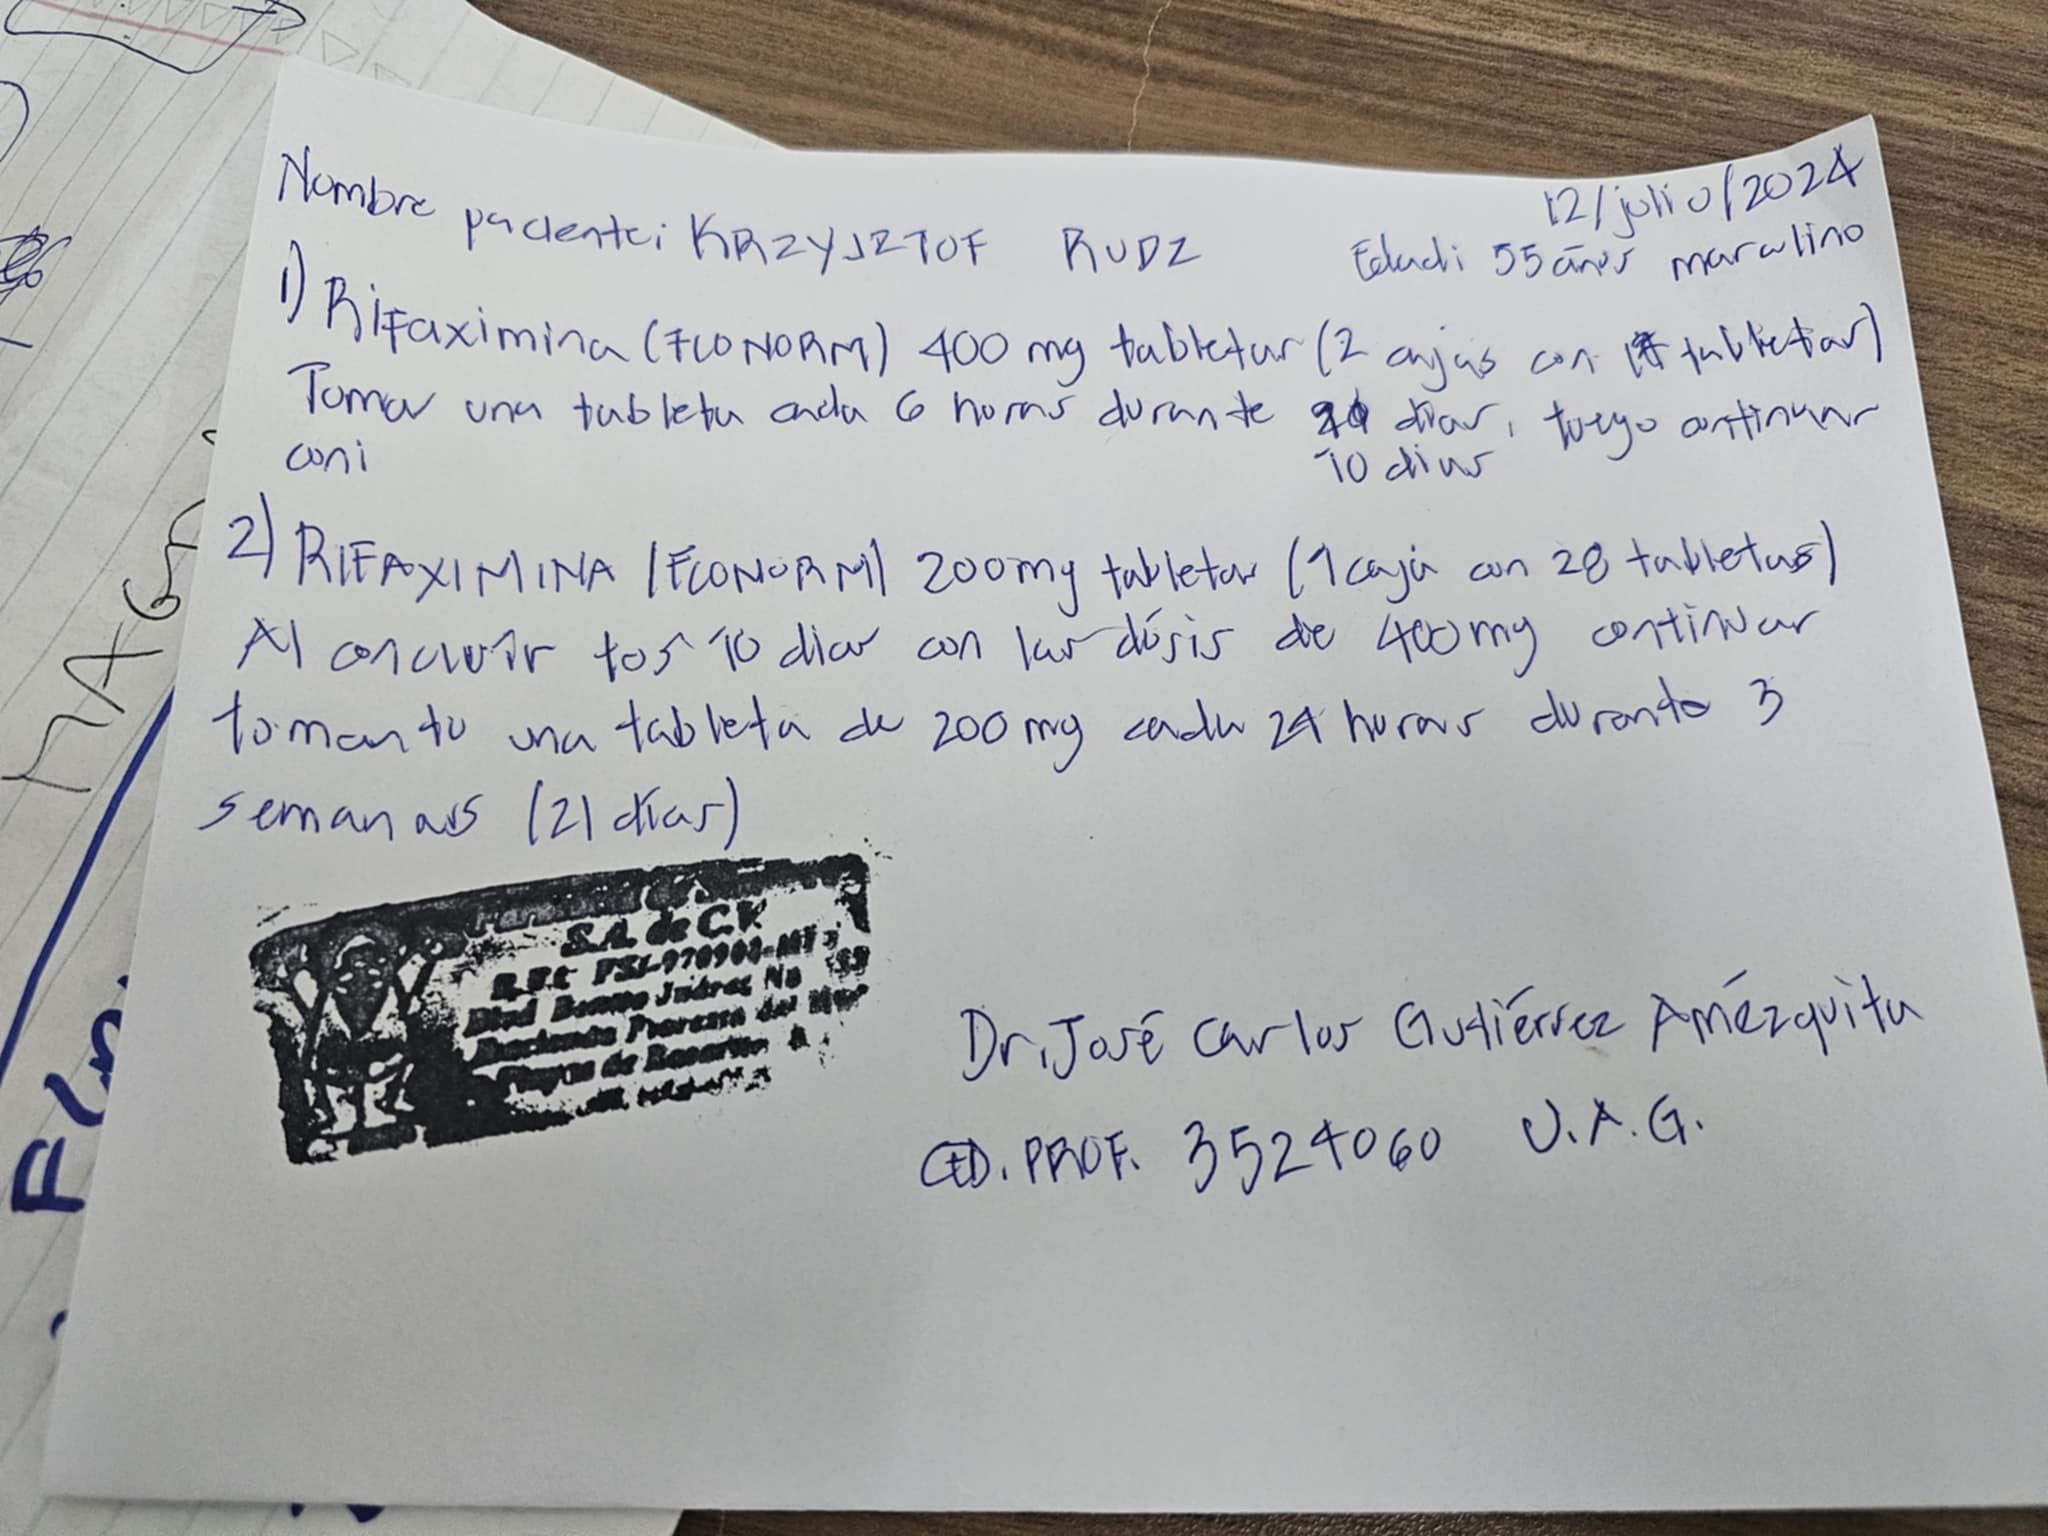 12/julio/2024
Nombre paciente: KRZYSZTOF RUDZ
Edad: 55 años masculino
1) Rifaximina (ECONORM) 400 mg tabletas (2 cajas con tabletas)
Tomar una tableta cada 6 horas durante días, luego continuar
10 días
con:
2) RIFAXIMINA (ECONORM) 200mg tabletas (1 caja con 28 tabletas)
Al concluir los 10 días con las dósis de 400mg continuar
tomando una tableta de 200 mg cada 24 horas durante 3
semanas (21 días)
S.A. de C.V.
Blvd Benito Juárez No
Playas de Rosarito
Dr. José Carlos Gutiérrez Amézquita
CED. PROF. 3524060 U.A.G.